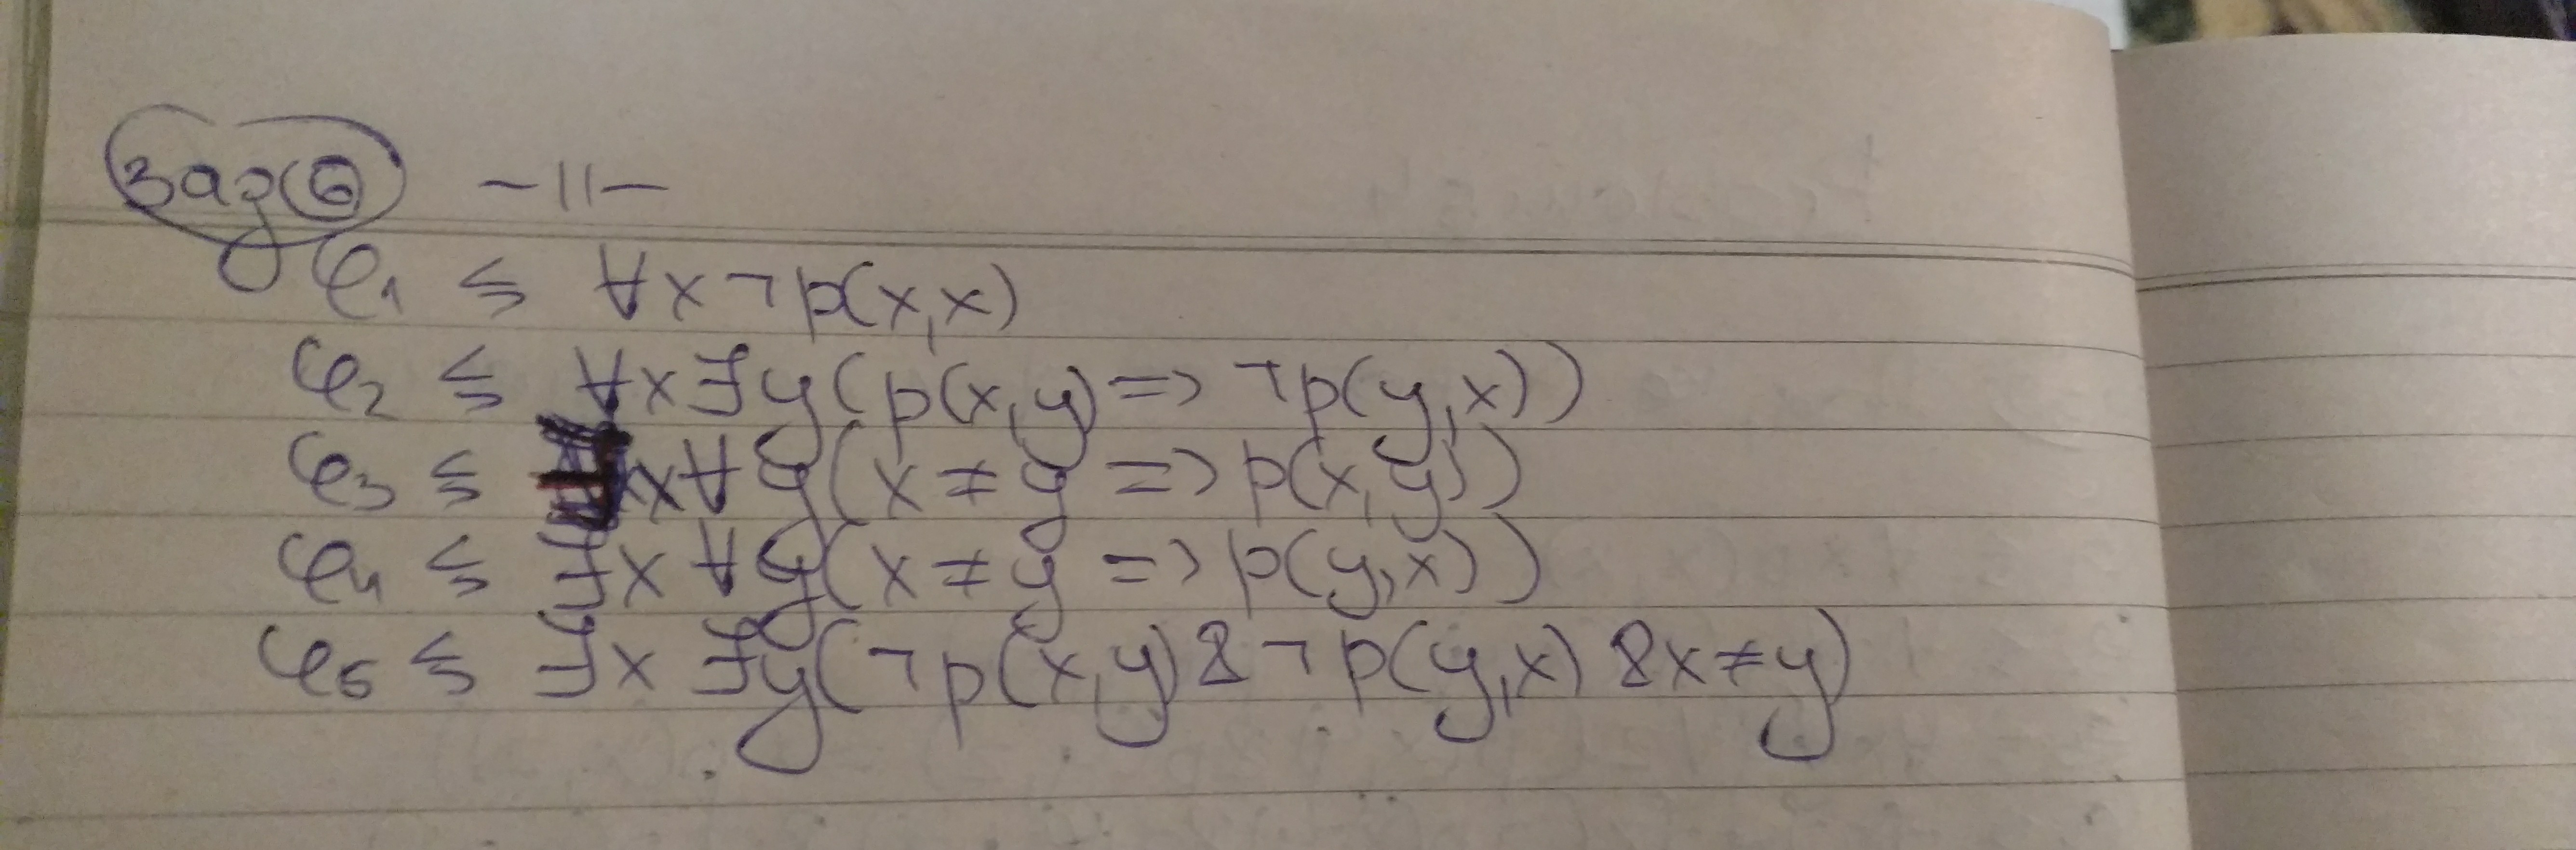 Зад 6 -11-
φ₁ ≤ ∀x¬p(x,x)
φ₂ ≤ ∀x∃y(p(x,y) => ¬p(y,x))
φ₃ ≤ ∃x∀y(x≠y => p(x,y))
φ₄ ≤ ∃x∀y(x≠y => p(y,x))
φ₅ ≤ ∃x∃y(¬p(x,y)&¬p(y,x)&x≠y)